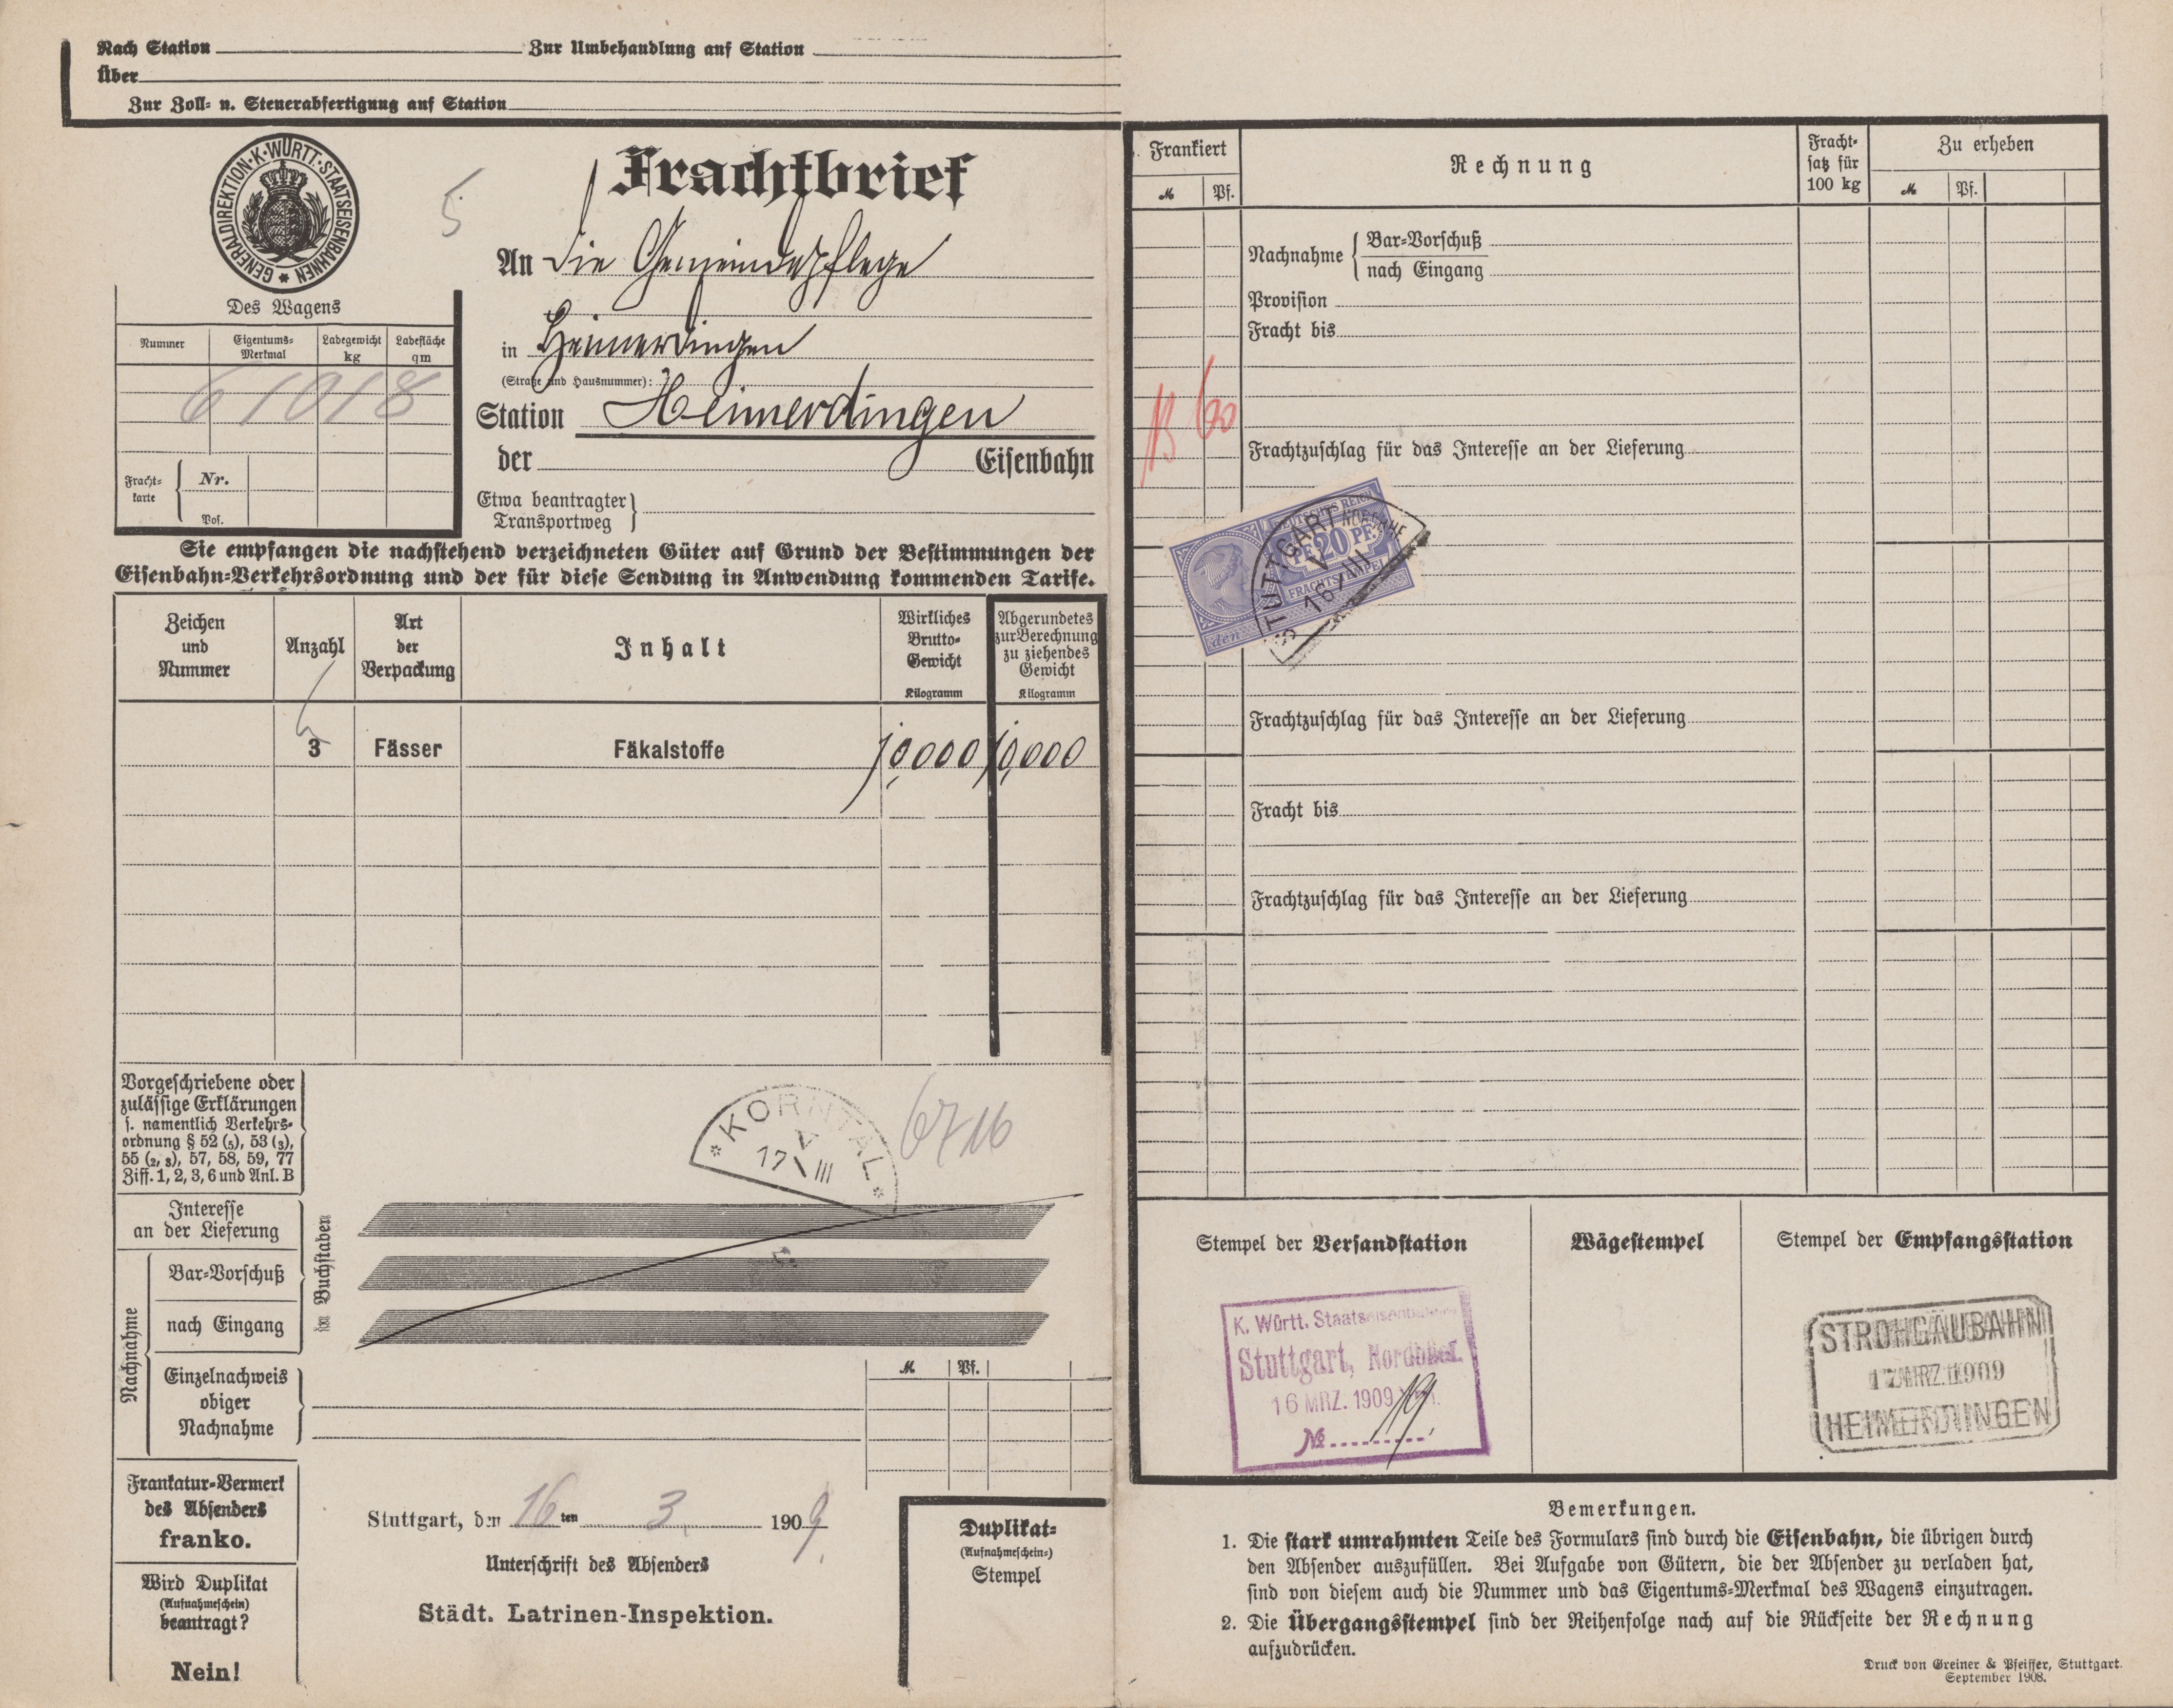 Nach Station Zur Umbehandlung auf Station
Über
Zur Zoll- u. Steuerabfertigung auf Station
GENERALDIREKTION·K·WÜRTT·STAATSEISENBAHNEN
5
Frachtbrief
An die Gemeindepflege
in Heimerdingen
(Straße und Hausnummer):
Station Heimerdingen
der Eisenbahn
Etwa beantragter Transportweg
Des Wagens
Nummer Eigentums-Merkmal Ladegewicht kg Ladefläche qm
61018
Frachtkarte Nr.
Pos.
Sie empfangen die nachstehend verzeichneten Güter auf Grund der Bestimmungen der
Eisenbahn-Verkehrsordnung und der für diese Sendung in Anwendung kommenden Tarife.
Zeichen und Nummer Anzahl Art der Verpackung Inhalt Wirkliches Brutto-Gewicht Kilogramm Abgerundetes zur Berechnung zu ziehendes Gewicht Kilogramm
3 Fässer Fäkalstoffe 10,000 10,000
Vorgeschriebene oder
zulässige Erklärungen
s. namentlich Verkehrs-
ordnung § 52 (5), 53 (3),
55 (2, 3), 57, 58, 59, 77
Ziff. 1, 2, 3, 6 und Anl. B
KORNTAL
V
17 III
6716
Interesse
an der Lieferung
in Buchstaben
Nachnahme
Bar-Vorschuß
nach Eingang
Einzelnachweis
obiger
Nachnahme
M Pf.
Frankatur-Vermerk
des Absenders
franko.
Wird Duplikat
(Aufnahmeschein)
beantragt?
Nein!
Stuttgart, den 16ten 3. 1909.
Unterschrift des Absenders
Städt. Latrinen-Inspektion.
Duplikat-
(Aufnahmeschein-)
Stempel
Frankiert Rechnung Fracht-satz für 100 kg Zu erheben
M Pf. M Pf.
Nachnahme Bar-Vorschuß
nach Eingang
Provision
Fracht bis
60
Frachtzuschlag für das Interesse an der Lieferung
DEUTSCHES REICH
PF. 20 PF.
FRACHTSTEMPEL
den
STUTTGART
V
16 III
Frachtzuschlag für das Interesse an der Lieferung
Fracht bis
Frachtzuschlag für das Interesse an der Lieferung
Stempel der Versandstation Wägestempel Stempel der Empfangsstation
K. Württ. Staatseisenbahnen
Stuttgart, Nordbhf.
16 MRZ. 1909
No 19
STROHGÄUBAHN
17.MRZ.1909
HEIMERDINGEN
Bemerkungen.
1. Die stark umrahmten Teile des Formulars sind durch die Eisenbahn, die übrigen durch
den Absender auszufüllen. Bei Aufgabe von Gütern, die der Absender zu verladen hat,
sind von diesem auch die Nummer und das Eigentums-Merkmal des Wagens einzutragen.
2. Die Übergangsstempel sind der Reihenfolge nach auf die Rückseite der Rechnung
aufzudrücken.
Druck von Greiner & Pfeiffer, Stuttgart.
September 1908.